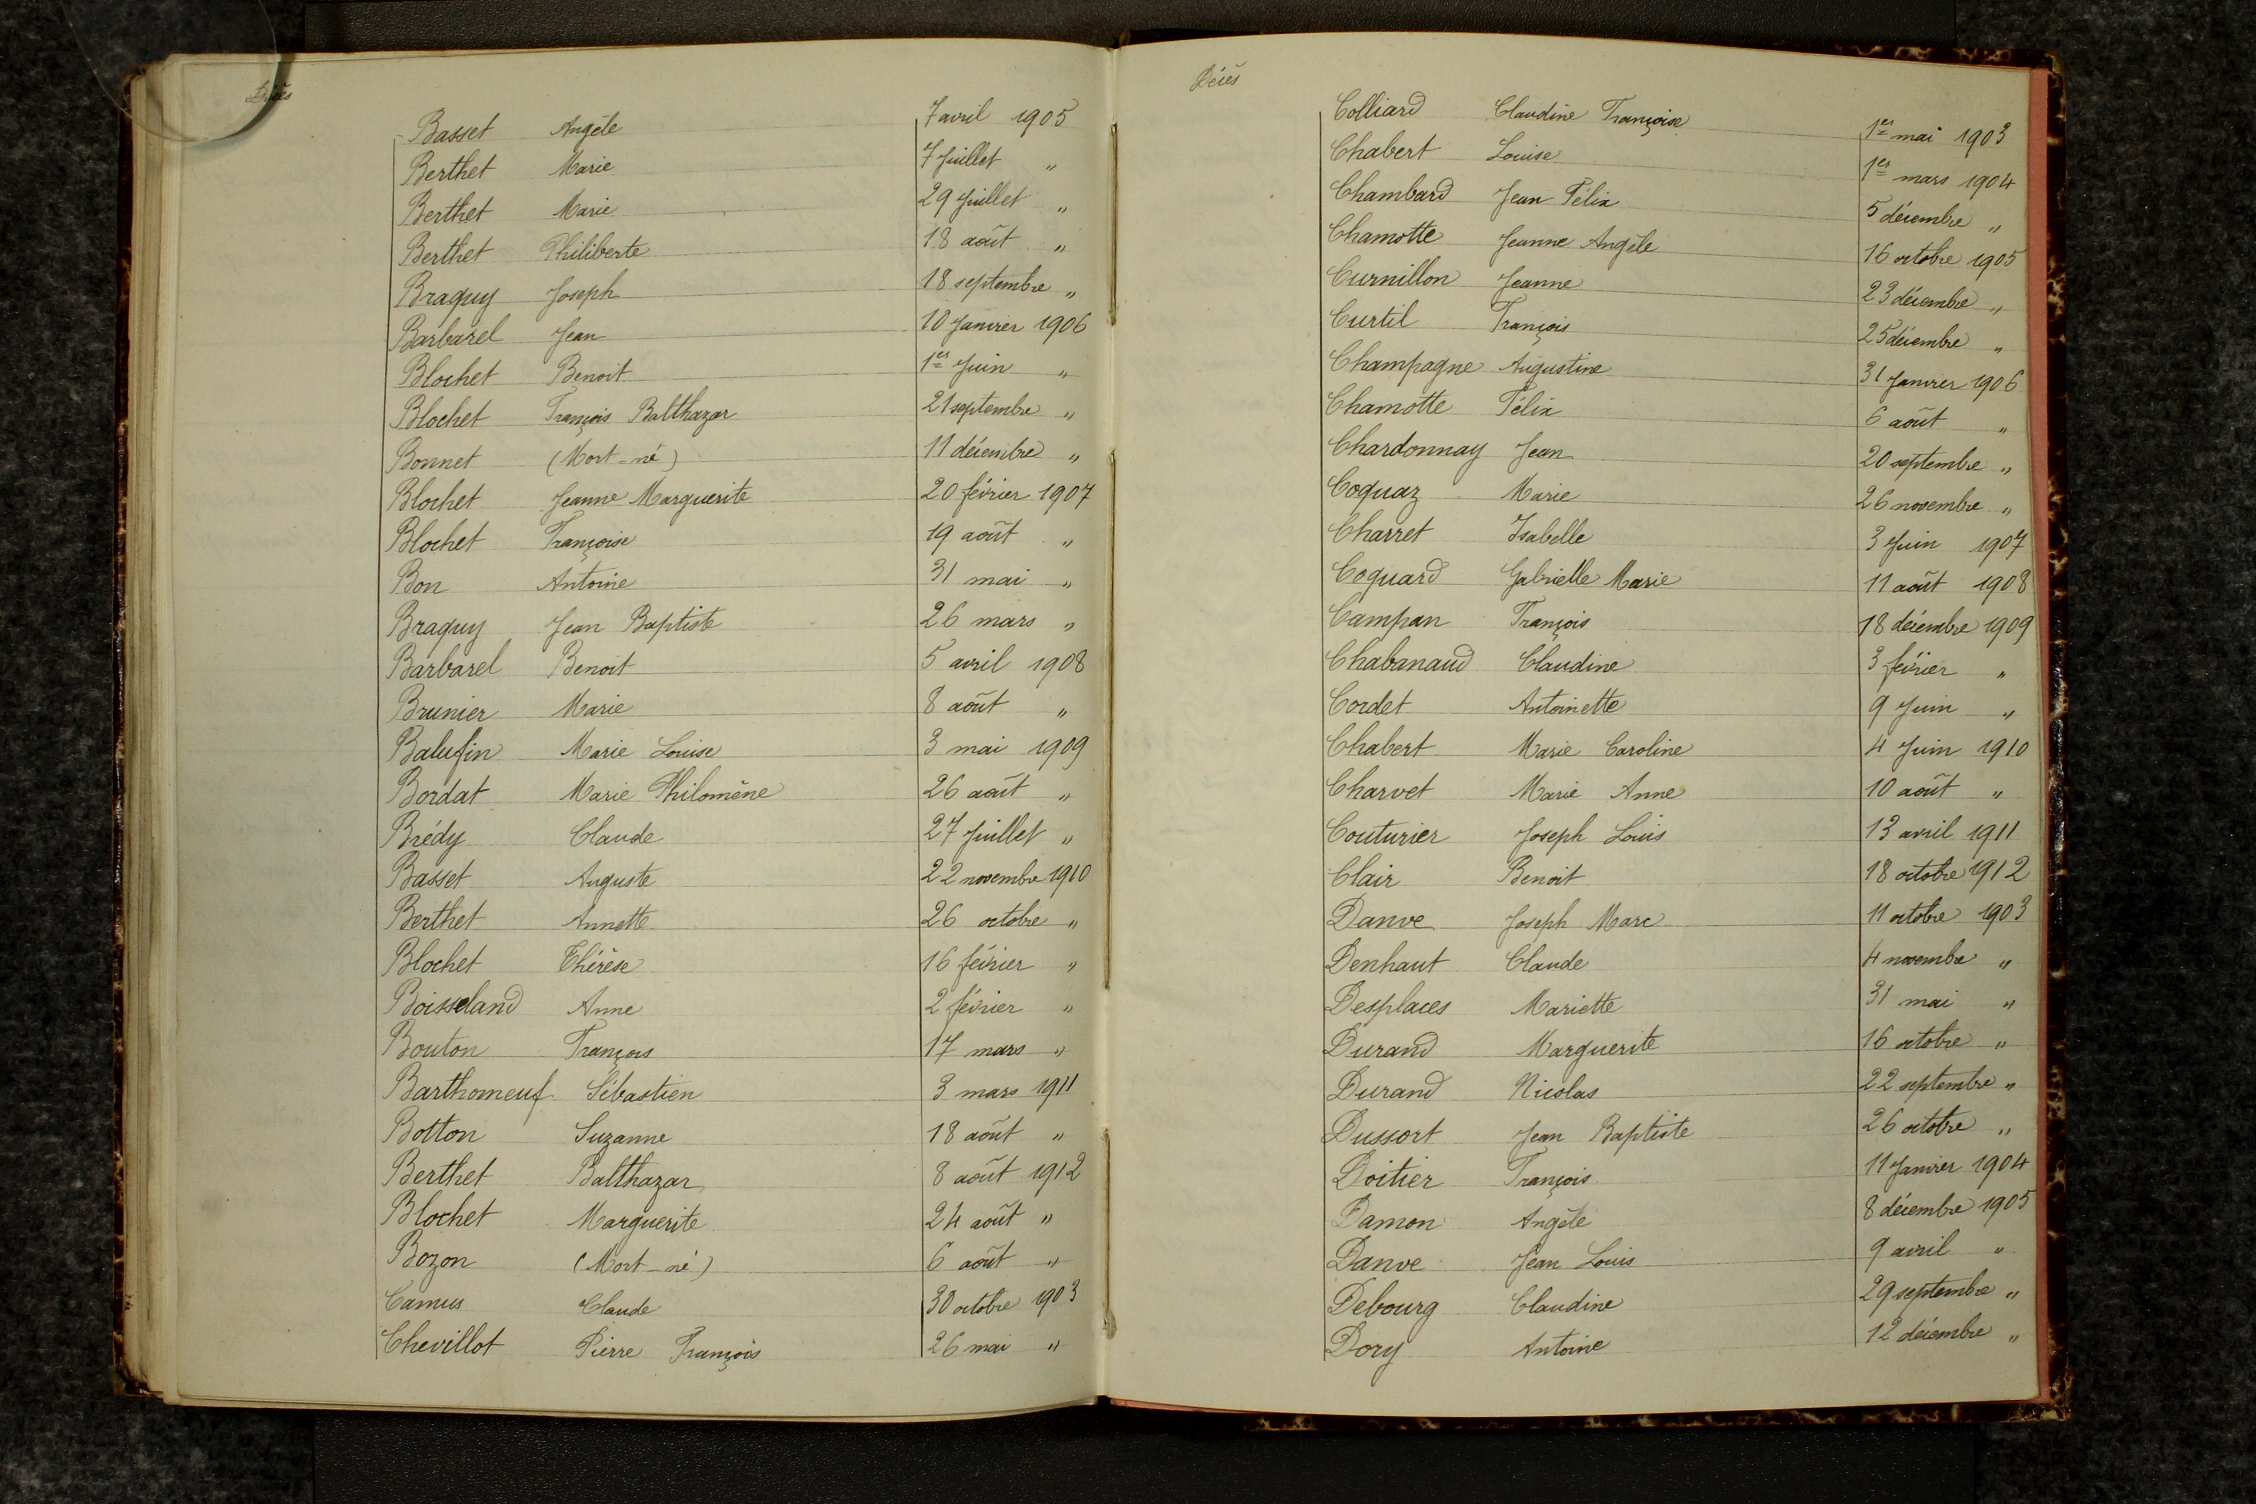 Décès
Basset Angèle 7 avril 1905
Berthet Marie 7 Juillet "
Berthet Marie 29 Juillet "
Berthet Philiberte 18 août "
Braguy Joseph 18 septembre "
Barbarel Jean 10 Janvier 1906
Blochet Benoit 1er Juin "
Blochet François Balthazar 21 septembre "
Bonnet (Mort-né) 11 décembre "
Blochet Jeanne Marguerite 20 février 1907
Blochet Françoise 19 août "
Bon Antoine 31 mai "
Braguy Jean Baptiste 26 mars "
Barbarel Benoit 5 avril 1908
Brunier Marie 8 août "
Balufin Marie Louise 3 mai 1909
Bordat Marie Philomène 26 août "
Brédy Claude 27 Juillet "
Basset Auguste 22 novembre 1910
Berthet Annette 26 octobre "
Blochet Thérèse 16 février "
Boisseland Anne 2 février "
Bouton François 17 mars "
Barthomeuf Sébastien 3 mars 1911
Botton Suzanne 18 août "
Berthet Balthazar 8 août 1912
Blochet Marguerite 24 août "
Bozon (Mort-né) 6 août "
Camus Claude 30 octobre 1903
Chevillot Pierre François 26 mai "
Décès
Colliard Claudine Françoise 1er mai 1903
Chabert Louise 1er mars 1904
Chambard Jean Félix 5 décembre "
Chamotte Jeanne Angèle 16 octobre 1905
Curnillon Jeanne 23 décembre "
Curtil François 25 décembre "
Champagne Augustine 31 Janvier 1906
Chamotte Félix 6 août "
Chardonnay Jean 20 septembre "
Coquaz Marie 26 novembre "
Charret Isabelle 3 Juin 1907
Coquard Gabrielle Marie 11 août 1908
Campan François 18 décembre 1909
Chabanaud Claudine 3 février "
Cordet Antoinette 9 Juin "
Chabert Marie Caroline 4 Juin 1910
Charvet Marie Anne 10 août "
Couturier Joseph Louis 13 avril 1911
Clair Benoit 18 octobre 1912
Danve Joseph Marc 11 octobre 1903
Denhaut Claude 4 novembre "
Desplaces Mariette 31 mai "
Durand Marguerite 16 octobre "
Durand Nicolas 22 septembre "
Dussort Jean Baptiste 26 octobre "
Doitier François 11 Janvier 1904
Damon Angèle 8 décembre 1905
Danve Jean Louis 9 avril "
Debourg Claudine 29 septembre "
Dory Antoine 12 décembre "